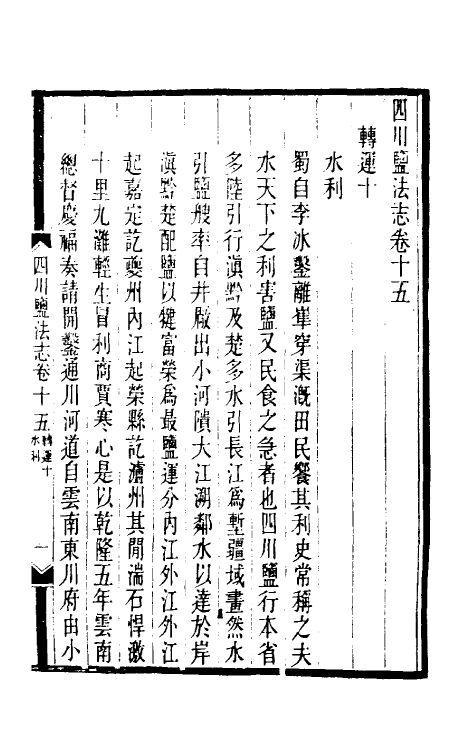 四川鹽法志卷十五
轉運十
水利
蜀自李冰鑿離堆穿渠溉田民饗其利史常稱之夫
水天下之利害鹽又民食之急者也四川鹽行本省
多陸引行滇黔及楚多水引長江爲塹疆域畫然水
引鹽艘率自井廠出小河隤大江溯鄰水以達於岸
滇黔楚配鹽以犍富榮爲最鹽運分內江外江外江
起嘉定訖夔州內江起榮縣訖瀘州其閒湍石悍激
十里九灘輕生冒利商賈寒心是以乾隆五年雲南
總督慶福奏請開鑿通川河道自雲南東川府由小
四川鹽法志卷十五
轉運十
水利
一